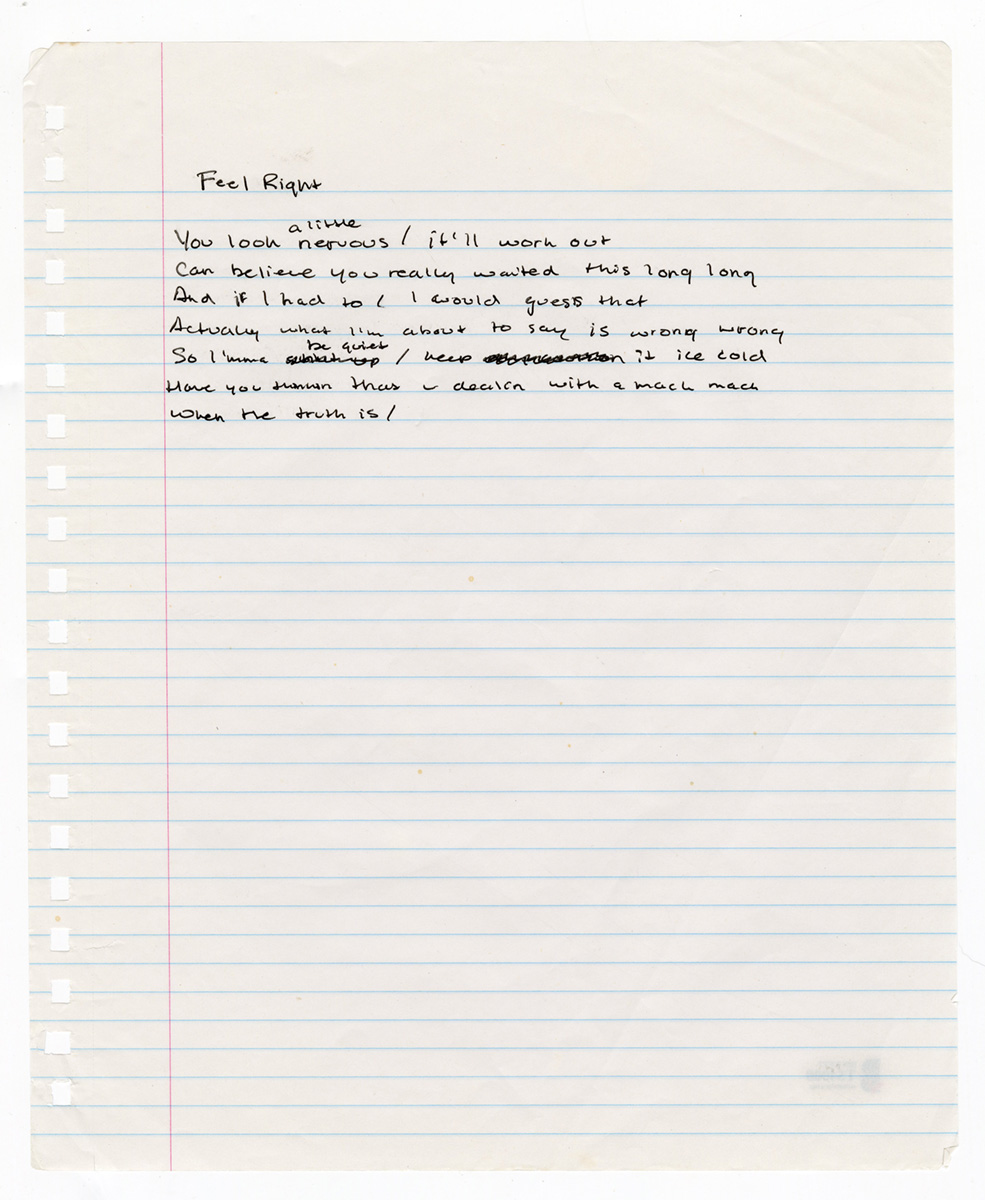 Feel Right
You look a little nervous / it'll work out
Can believe you really waited this long long
And if I had to / I would guess that
Actually what I'm about to say is wrong wrong
So I'mma be quiet / keep it ice cold
Have you thinkin that u dealin with a mack mack
When the truth is /